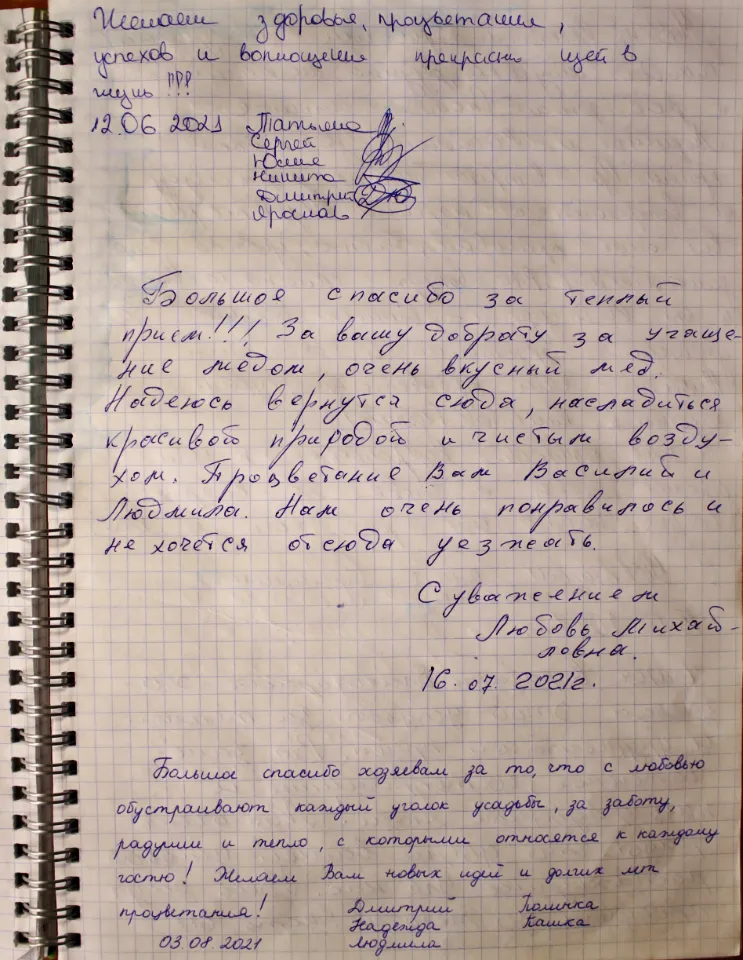 Желаем здоровья, процветания,
успехов и воплощения прекрасных идей в
жизнь!!!
12.06 2021 Татьяна
Сергей
Юлия
Никита
Дмитрий
Ярослав
Большое спасибо за теплый
прием!!!! За вашу доброту за угаще-
ние медом, очень вкусный мед.
Надеюсь вернутся сюда, насладиться
красивой природой и чистым возду-
хом. Процветание Вам Василий и
Людмила. Нам очень понравилось и
не хочется отсюда уезжать.
С уважением
Любовь Михай-
ловна.
16.07. 2021г.
Большое спасибо хозяевам за то, что с любовью
обустраивают каждый уголок усадьбы, за заботу,
радушие и тепло, с которыми относятся к каждому
гостю! Желаем Вам новых идей и долгих лет
процветания! Дмитрий Полинка
Надежда Кашка
03.08.2021 Людмила